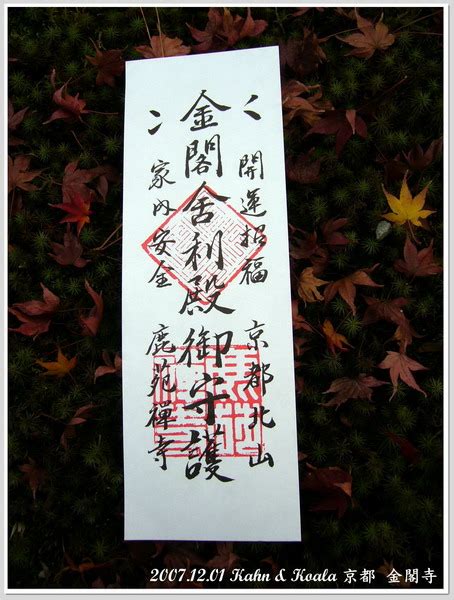 開運招福 京都北山
金閣舎利殿御守護
家内安全 鹿苑禅寺
2007.12.01 Kahn & Koala 京都 金閣寺